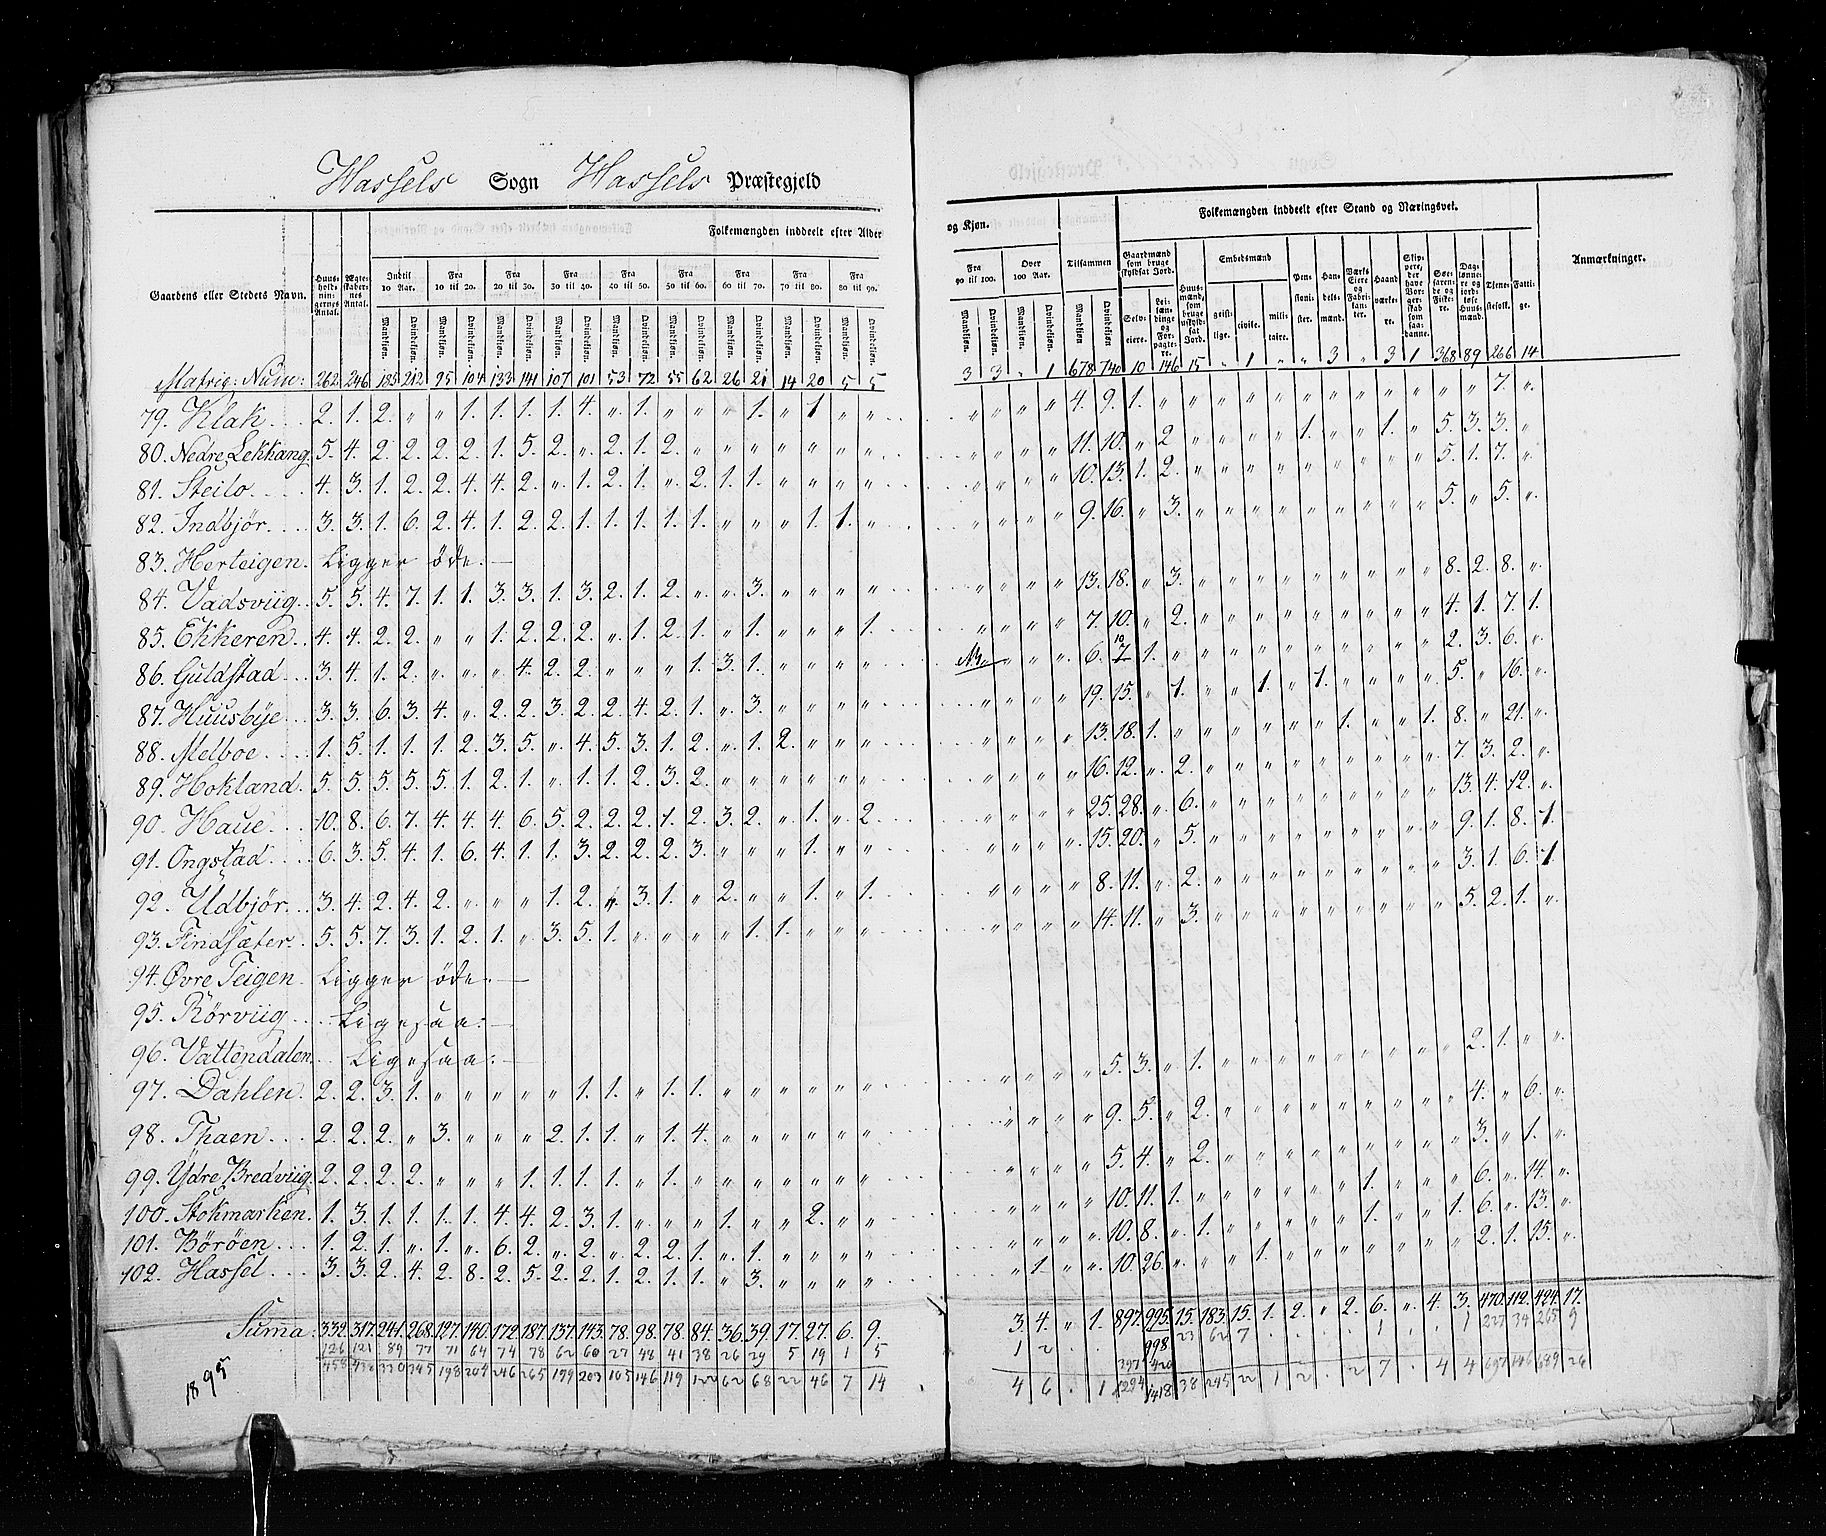 Hassels Sogn Hassels Præstegjeld
Gaardens eller Stedets Navn. Huusholdningernes Antal. Ægteskabernes Antal. Folkemængden inddeelt efter Alder og Kjøn. Tilsammen Folkemængden inddeelt efter Stand og Næringsvei. Anmærkninger.
Indtil 10 Aar. Fra 10 til 20. Fra 20 til 30. Fra 30 til 40. Fra 40 til 50. Fra 50 til 60. Fra 60 til 70. Fra 70 til 80. Fra 80 til 90. Fra 90 til 100. Over 100 Aar.
Mandkjøn. Qvindekjøn.
Gaardmænd som bruge skyldsat Jord. Selveiere. Leilændinge og Forpagtere. Huusmænd, som bruge uskyldsat Jord. Embedsmænd geistlige. civile. militaire. Pensionister. Handelsmænd. Værks Eiere og Fabrikanter. Haandværkere. Skippere, der have Borgerskab som saadanne. Søefarende og Fiskere. Daglønnere og jordløse Huusmænd. Tjenestefolk. Fattige.
Matrig: Num: 262 246 185 212 95 104 133 141 107 101 53 72 55 62 26 21 14 20 5 5 3 3 " 1 678 740 10 146 15 " 1 " " 3 " 3 1 368 89 266 14
79. Klak 2. 1. 2. " " 1. 1. 1. 1. 4. " 1. " " " 1. " 1 " " " " " " 4. 9. 1. " " " " " " " " " " " " 7. "
80. Nedre Lekkang 5. 4. 2. 2. 2. 2. 1. 5. 2. " 2. 1. 2. " " " " " " " " " " " 11. 10. " 2 " " " " 1. " " 1. " 5. 3. 3. "
81. Steilo 4. 3. 1. 2. 2. 4. 4. 2. " 1. 2. 1. " 2. 1. 1. " " " " " " " " 10. 13. 1. 2. " " " " " " " " " 5. 1. 7. "
82. Indbjør 3. 3. 1. 6. 2. 4. 1. 2. 2. 1. 1. 1. 1. 1. " " " 1. 1. " " " " " 9. 16. " 3. " " " " " " " " " 5. " 5. "
83. Herteigen. Ligger øde.
84. Vadsviig 5. 5. 4. 7. 1. 1. 3. 3. 1. 3. 2. 1. 2. " " 3. " " " " " " " " 13. 18. " 3. " " " " " " " " " 8. 2. 8. "
85. Ekkeren 4. 4. 2. 2. " " 1. 2. 2. 2. " 1. 2. 1. " 1. " " " 1. " " " " 7. 10. " 2. " " " " " " " " " 4. 1. 7. 1.
86. Guldstad 3. 4. 1. 2. " " " 4. 2. 2. " " " 1. 3. 1. " " " " " " " 6. 10 7 1. " " " " " " " " " " 2. 3. 6. "
87. Huusbye 3. 3. 6. 3. 4. " 2. 2. 3. 2. 2. 4. 2. 1. " 3. " " " " " " " " 19. 15. " 1. " " 1. " 1. " " " " 5. " 16. "
88. Melboe 1. 5. 1. 1. 1. 2. 3. 5. " 4. 5. 3. 1. 2. " 1. 2. " " " " " " " 13. 18. 1. " " " " " " 1. " " 1. 8. " 21. "
89. Hokland 5. 5. 5. 5. 5. 1. 2. 1. " 1. 1. 2. 3. 2. " " " " " " " " " " 16. 12. " 2. " " " " " " " " " 7. 3. 2. "
90. Haue 10. 8. 6. 7. 4. 4. 4. 6. 5. 2. 2. 2. 1. 2. 3. 2. " 1. " 2. " " " " 25. 28. " 6. " " " " " " " " " 13. 4. 12. "
91. Ongstad 6. 3. 5. 4. 1. 6. 4. 1. 1. 3. 2. 2. 2. 3. " " " 1. " " " " " " 15. 20. " 5. " " " " " " " " " 9. 1. 8. 1.
92. Udbjør 3. 4. 2. 4. 2. " " " 1. 2. " 3. 1. " 2. " " 1. " 1. " " " " 8. 11. " 2. " " " " " " " " " 3. 1. 6. 1
93. Findsæter 5. 5. 7. 3. 1. 2. 1. " 3. 5. 1. " " " " 1. 1. " " " " " " " 14. 11. " 3. " " " " " " " " " 5. 2. 1. "
94. Øvre Teigen. Ligger øde.
95. Rörviig Ligesaa.
96. Vattendalen Ligesaa:
97. Dahlen 2. 2. 3. 1. " " " " " 1. 1. " 1. 1. " " " " " " " " " " 5. 3. " 1. " " " " " " " " " 2. 1. " "
98. Thaen 2. 2. 2. " 3. " " " 2. 1. 1. " 1. 4. " " " " " " " " " " 9. 5. " 2. " " " " " " " " " 4. " 6. "
99. Ydre Bredviig 2. 2. 2. 2. " " " 1. 1. 1. 1. " 1. " " " " " " " " " " " 5. 4. " 2. " " " " " " " " " 3. " 1. "
100. Stokmarken. 1. 3. 1. 1. 1. 1. 4. 4. 2. 3. 1. " " " 1. " " 2. " " " " " " 10. 11. 1. " " " " " " 1. " " " 6. " 14. "
101. Böröen 1. 2. 1. " 1. " 6. 2. " 2. " 2. 2. 1. " 1. " " " " " " " " 10. 8. " 1. " " " " " 1. " " 1. 6. " 13. "
102. Hassel 3. 3. 2. 4. 2. 8. 2. 5. 2. 2. 1. 2. 1. 1. " 3. " " " " " 1. " " 10. 26. " " " 1. " " " " " " " 2. 1. 15. "
Suma: 332. 317. 241. 268. 127. 140. 172. 187. 137. 143. 78. 98. 78. 84. 36. 39. 17. 27. 6. 9. 3. 4. " 1. 897. 995. 15. 183. 15. 1. 2. " 2. 6. " 4. 3. 470. 112. 424. 17.
126 121 89 77 71 64 74 78 62 60 27 48 41 38 26 29 5 19 1 5 1 2 998 23 62 7 1 1 227 34 265 9
397 420
458 438 330 345 198 204 246 265 199 203 105 146 119 122 62 68 22 46 7 14 4 6 . 1 1294 1418 38 245 22 1 2 . 2 7 . 4 4 697 146 689 26
1895